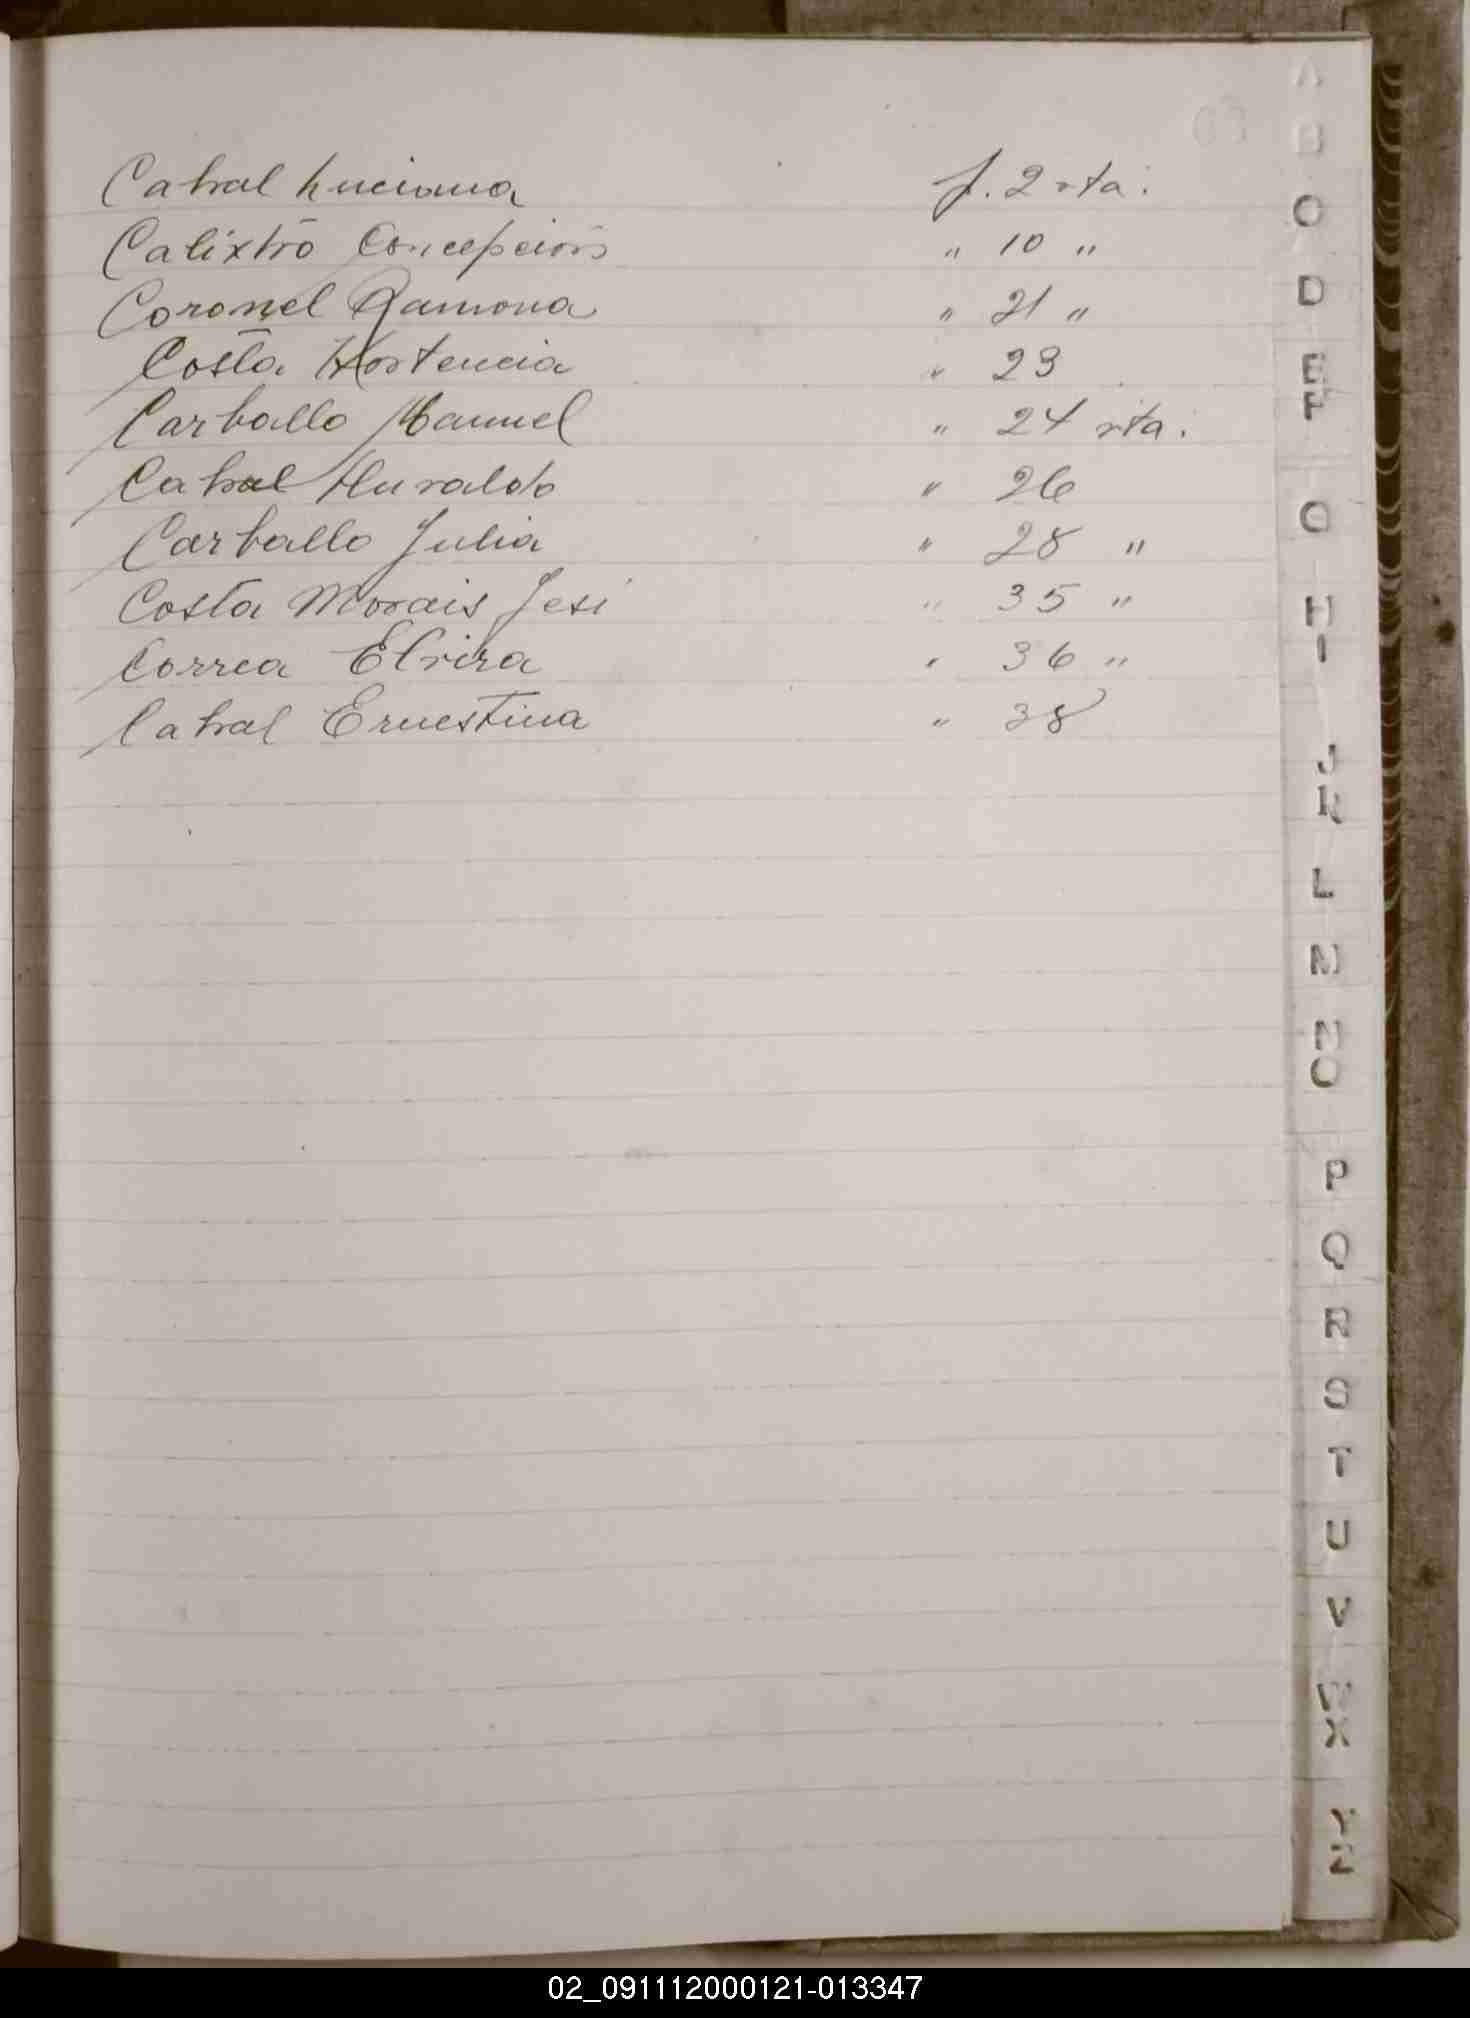 Cabral Luciana f. 2 vta.
Calixtro Concepción " 10 "
Coronel Ramona " 21 "
Costa Hortencia " 23
Carballo Manuel " 24 vta.
Cabral " 26
Carballo Julia " 28 "
Costa Morais Jesi " 35 "
Correa Elvira " 36 "
Cabral Ernestina " 38
A
B
C
D
E
F
G
H
I
J
K
L
M
N
O
P
Q
R
S
T
U
V
W
X
Y
Z
02_091112000121-013347